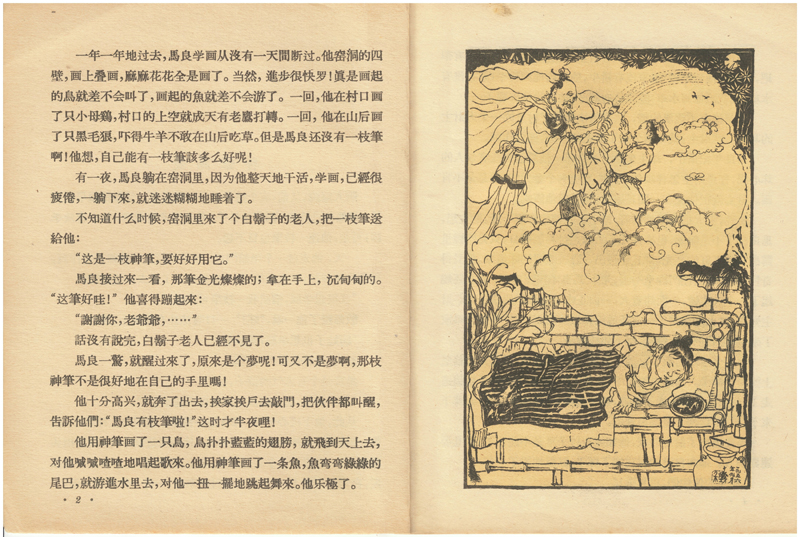 一年一年地过去，馬良学画从沒有一天間断过。他窑洞的四
壁，画上疊画，麻麻花花全是画了。当然，進步很快罗！眞是画起
的鳥就差不会叫了，画起的魚就差不会游了。一回，他在村口画
了只小母鷄，村口的上空就成天有老鷹打轉。一回，他在山后画
了只黑毛狠，吓得牛羊不敢在山后吃草。但是馬良还沒有一枝筆
啊！他想，自己能有一枝筆該多么好呢！
有一夜，馬良躺在窑洞里，因为他整天地干活，学画，已經很
疲倦，一躺下來，就迷迷糊糊地睡着了。
不知道什么时候，窑洞里來了个白鬍子的老人，把一枝筆送
給他：
“这是一枝神筆，要好好用它。”
馬良接过來一看，那筆金光燦燦的；拿在手上，沉甸甸的。
“这筆好哇！”他喜得蹦起來：
“謝謝你，老爺爺，……”
話沒有說完，白鬍子老人已經不見了。
馬良一驚，就醒过來了，原來是个夢呢！可又不是夢啊，那枝
神筆不是很好地在自己的手里嗎！
他十分高兴，就奔了出去，挨家挨戶去敲門，把伙伴都叫醒，
告訴他們：“馬良有枝筆啦！”这时才半夜哩！
他用神筆画了一只鳥，鳥扑扑藍藍的翅膀，就飛到天上去，
对他喊喊喳喳地唱起歌來。他用神筆画了一条魚，魚弯弯綠綠的
尾巴，就游進水里去，对他一扭一擺地跳起舞來。他乐極了。
· 2 ·